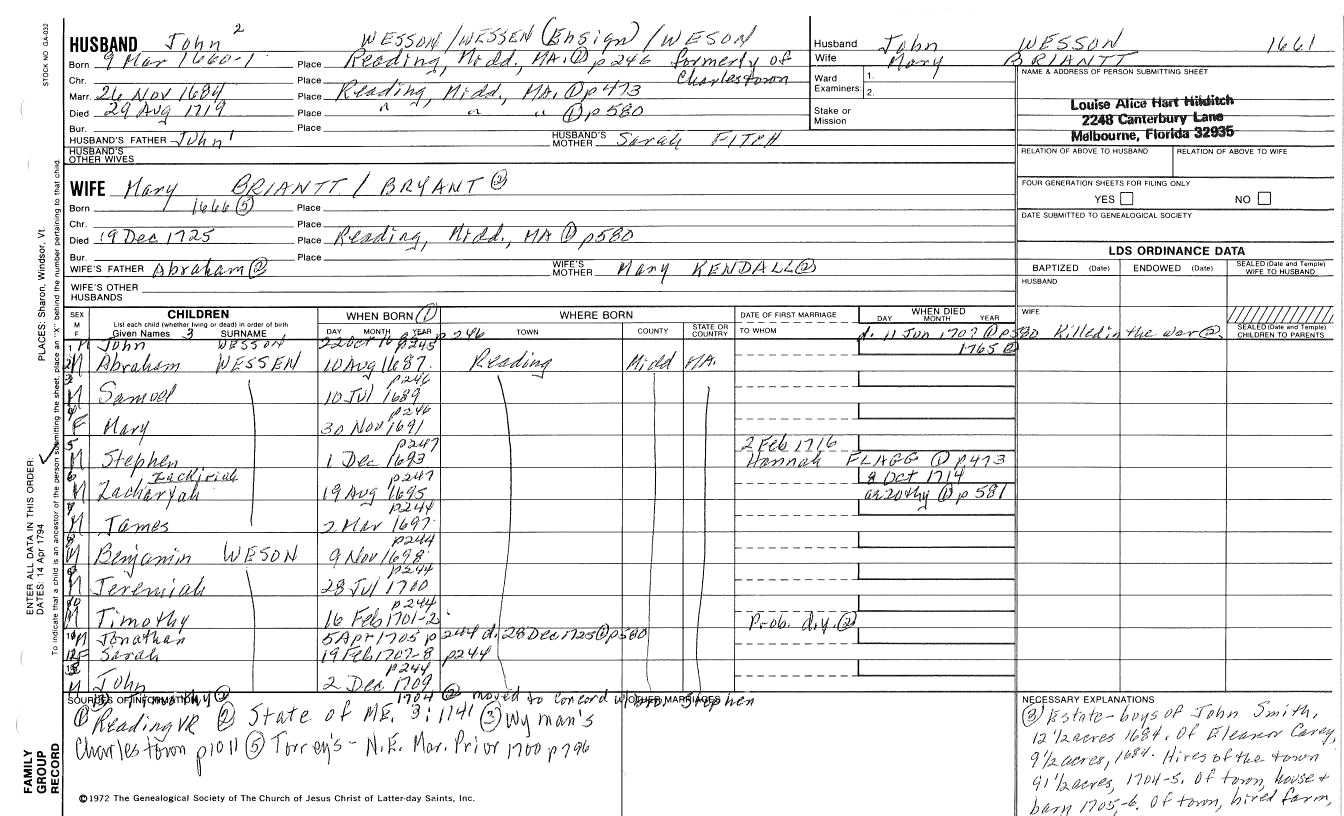 STOCK NO. GA-032
HUSBAND John 2 WESSON/WESSEN (Ensign)/WESON
Born 9 Mar 1660-1 Place Reading, Midd, MA. ① p246 formerly of Charlestown
Chr. Place
Marr. 26 Nov 1684 Place Reading, Midd, MA. ① p473
Died 29 Aug 1719 Place " " " ① p580
Bur. Place
HUSBAND'S FATHER John 1 HUSBAND'S MOTHER Sarah FITCH
HUSBAND'S OTHER WIVES
WIFE Mary BRIANTT / BRYANT ②
Born 1666 ⑤ Place
Chr. Place
Died 19 Dec 1725 Place Reading, Midd., MA ① p580
Bur. Place
WIFE'S FATHER Abraham ② WIFE'S MOTHER Mary KENDALL ②
WIFE'S OTHER HUSBANDS
Husband John WESSON 1661
Wife Mary BRIANTT
Ward Examiners: 1. 2.
Stake or Mission
NAME & ADDRESS OF PERSON SUBMITTING SHEET
Louise Alice Hart Hilditch
2248 Canterbury Lane
Melbourne, Florida 32935
RELATION OF ABOVE TO HUSBAND RELATION OF ABOVE TO WIFE
FOUR GENERATION SHEETS FOR FILING ONLY
YES NO
DATE SUBMITTED TO GENEALOGICAL SOCIETY
LDS ORDINANCE DATA
BAPTIZED (Date) ENDOWED (Date) SEALED (Date and Temple) WIFE TO HUSBAND
HUSBAND
WIFE
SEALED (Date and Temple) CHILDREN TO PARENTS
SEX M F CHILDREN WHEN BORN ① WHERE BORN DATE OF FIRST MARRIAGE WHEN DIED
List each child (whether living or dead) in order of birth
Given Names 3 SURNAME DAY MONTH YEAR TOWN COUNTY STATE OR COUNTRY TO WHOM DAY MONTH YEAR
1 M John WESSON 22 Oct p245 p246 d. 11 Jun 1707 ① p580 Killed in the war ②
2 M Abraham WESSEN 10 Aug 1687 Reading Midd MA. 1765 ②
3 M Samuel 10 Jul 1689 p246
4 F Mary 30 Nov 1691 p246
5 M Stephen 1 Dec 1693 p247 2 Feb 1716 Hannah FLAGG ① p473
6 M Zacharyah Zachiriah 19 Aug 1695 p247 8 Oct 1714 ae 20thy ① p581
7 M James 2 Mar 1697 p244
8 M Benjamin WESON 9 Nov 1698 p244
9 M Jeremiah 28 Jul 1700 p244
10 M Timothy 16 Feb 1701-2 p244 Prob. d.y. ②
11 M Jonathan 5 Apr 1705 p244 d. 28 Dec 1725 ① p580
12 F Sarah 19 Feb 1707-8 p244
13 M John 2 Dec 1709 p244
Timothy ② 1704 ② moved to Concord w/ Stephen
SOURCES OF INFORMATION OTHER MARRIAGES
① Reading VR ② State of ME. 3:1141 ③ Wyman's
Charlestown p1011 ⑤ Torrey's - N.E. Mar. Prior 1700 p796
NECESSARY EXPLANATIONS
③ Estate-boys of John Smith,
12 1/2 acres 1684. Of Eleanor Carey,
9 1/2 acres, 1684. Hires of the town
91 1/2 acres, 1704-5. Of town, house +
barn 1705-6. Of town, hired farm,
©1972 The Genealogical Society of The Church of Jesus Christ of Latter-day Saints, Inc.
FAMILY GROUP RECORD
ENTER ALL DATA IN THIS ORDER:
DATES: 14 Apr 1794 PLACES: Sharon, Windsor, Vt.
To indicate that a child is an ancestor of the person submitting the sheet, place an "X" behind the number pertaining to that child.